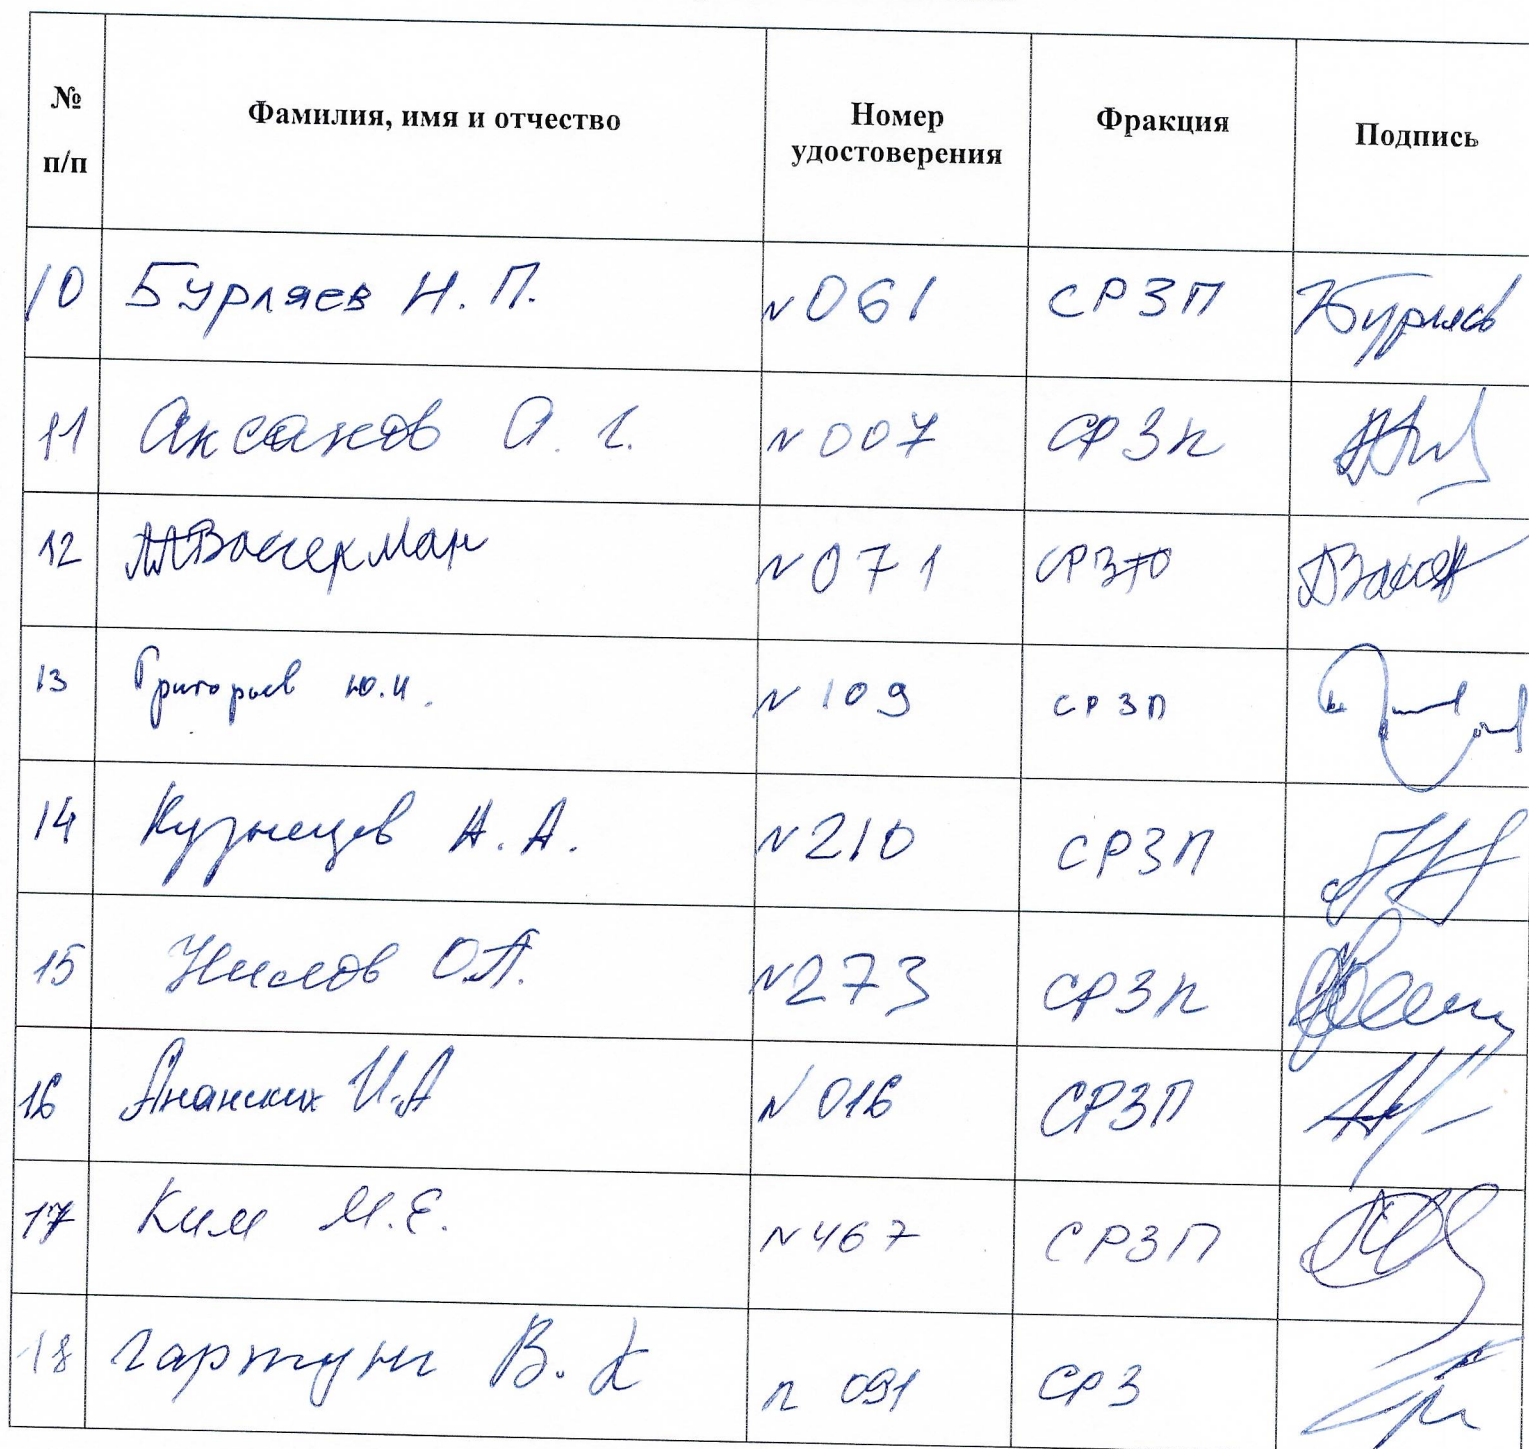 № п/п Фамилия, имя и отчество Номер удостоверения Фракция Подпись
10 Бурляев Н. П. N061 СРЗП Бурляев
11 Аксаков А. г. N007 СРЗП
12 АА Вассерман N071 СРЗП
13 Григорьев Ю.И. N109 СРЗП
14 Кузнецов А. А. N210 СРЗП
15 Нилов О.А. N273 СРЗП
16 Ананских И.А N016 СРЗП
17 Ким М.Е. N467 СРЗП
18 Гартунг В. К N 091 СРЗ